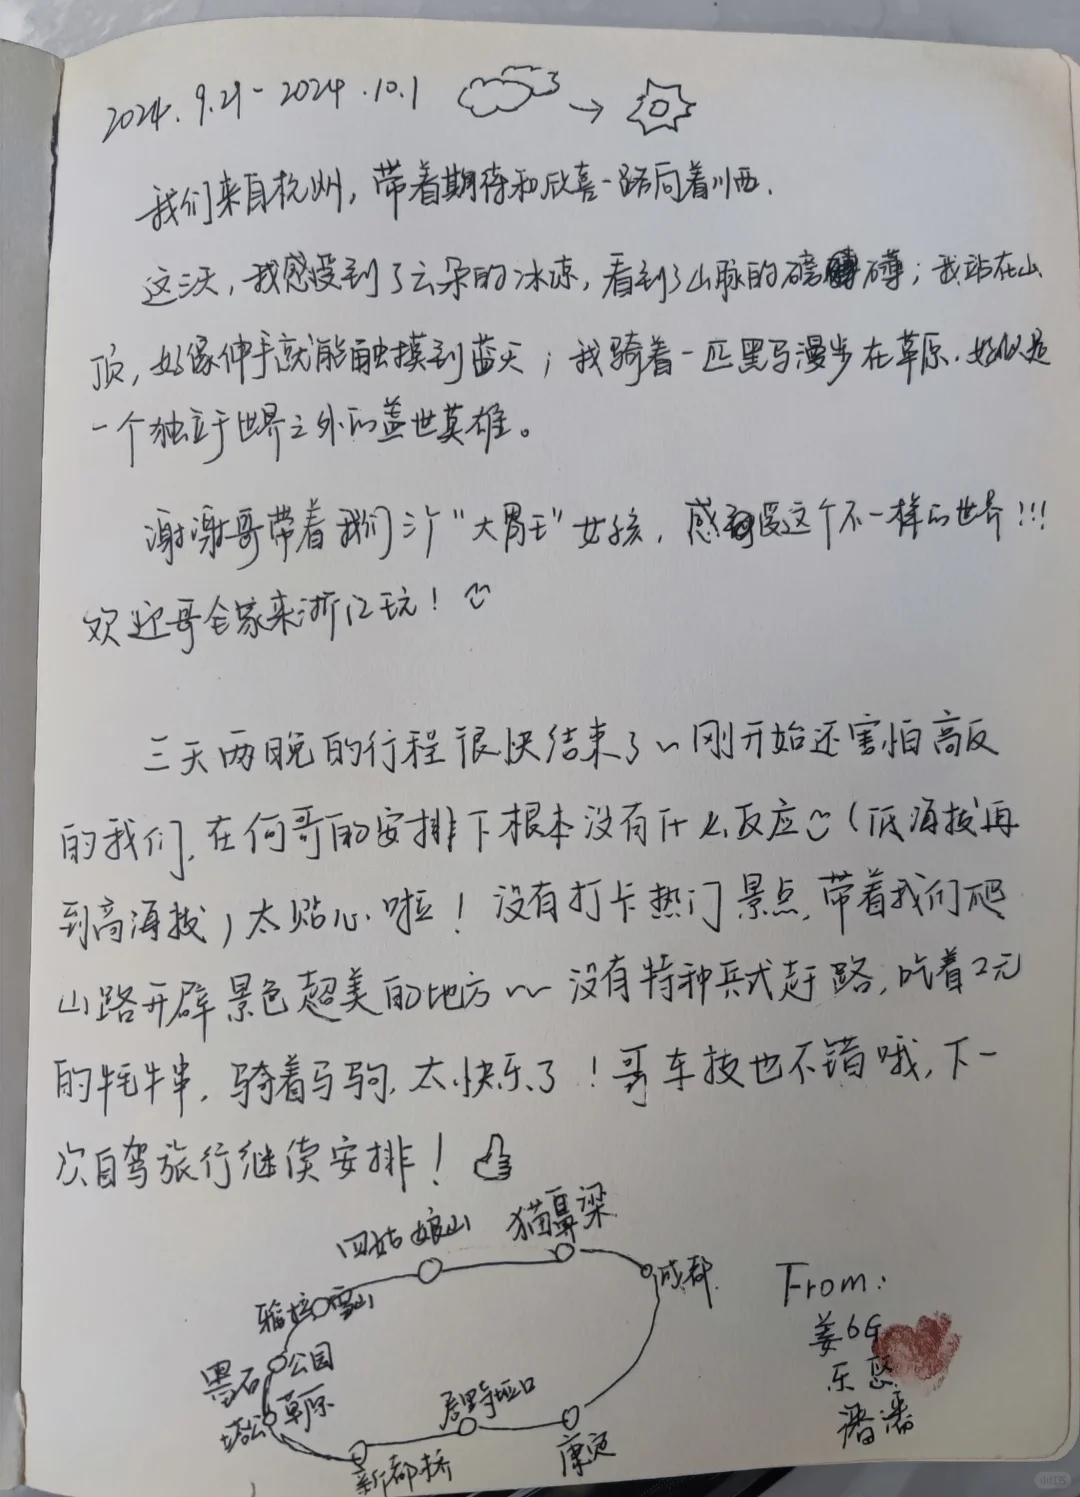 2024.9.29-2024.10.1
我们来自杭州，带着期待和欣喜一路向着川西.
这三天，我感受到了云朵的冰凉，看到了山脉的磅礴；我站在山
顶，好像伸手就能触摸到蓝天；我骑着一匹黑马漫步在草原.好似是
一个独立于世界之外的盖世英雄。
谢谢哥带着我们三个“大胃王”女孩，感受这个不一样的世界!!!
欢迎哥全家来浙江玩！
三天两晚的行程很快结束了~刚开始还害怕高反
的我们,在何哥的安排下根本没有什么反应（低海拔再
到高海拔）太贴心啦！没有打卡热门景点,带着我们爬
山路开辟景色超美的地方~~没有特种兵式赶路,吃着2元
的牦牛串,骑着马驹,太快乐了！哥车技也不错哦,下一
次自驾旅行继续安排！
四姑娘山
猫鼻梁
成都
雪山
黑石公园
塔公草原
垭口
新都桥
康定
From:
姜6G
乐
潘潘